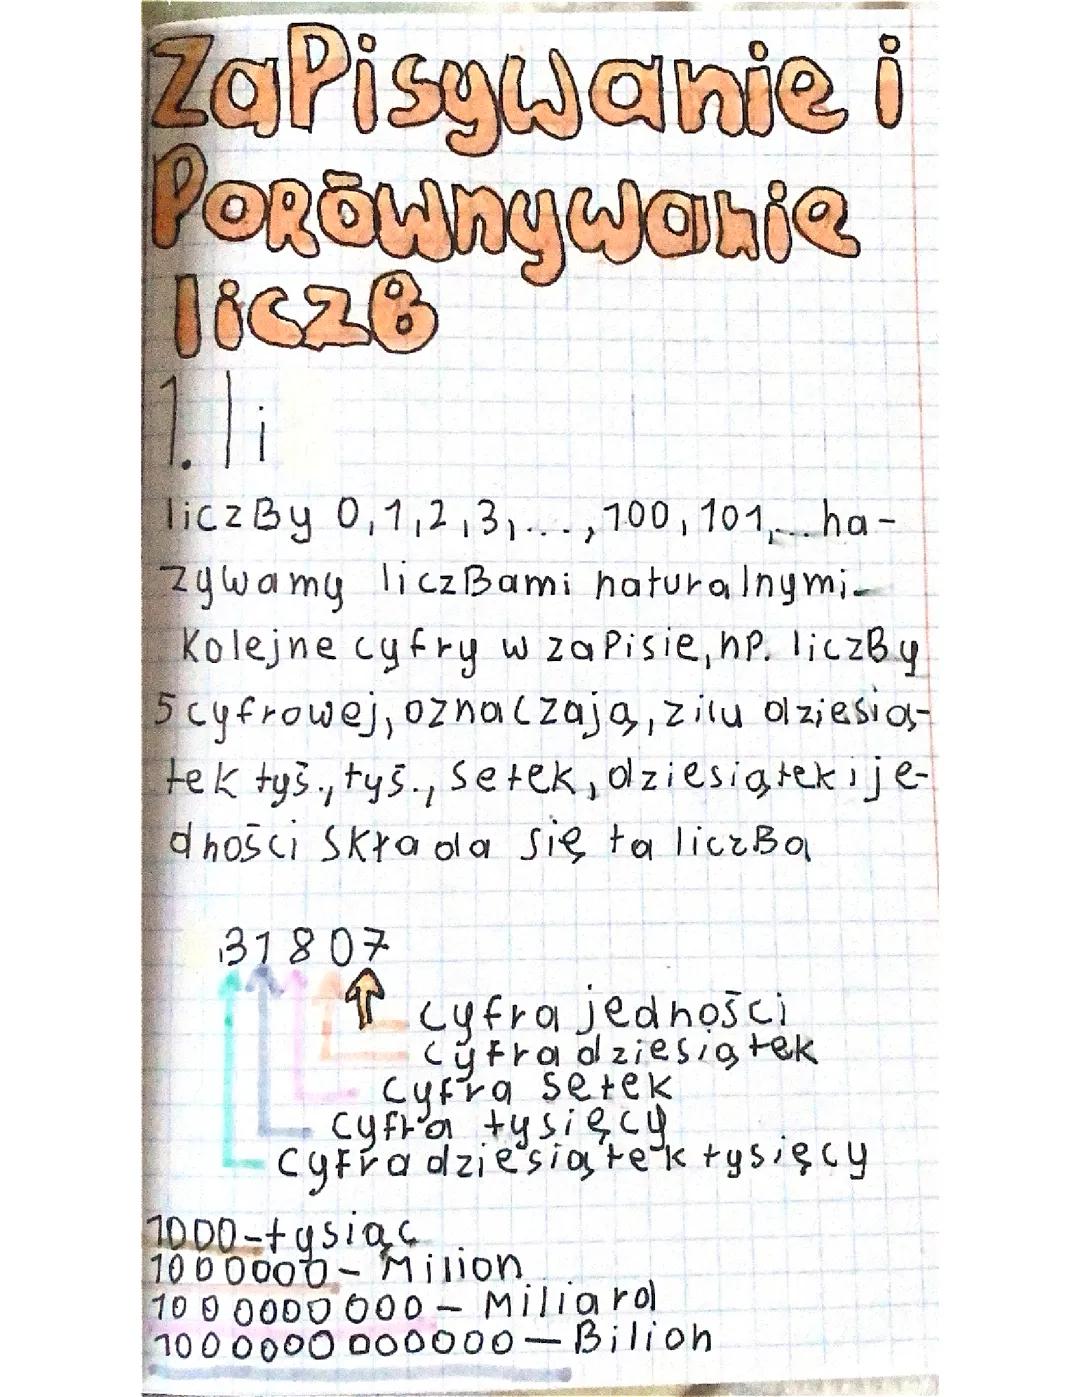 ZaPisywanie i
PORÓWnywanie
liczB
1. li
liczBy 0,1,2,3,...,100,101,... na-
zywamy liczBami naturalnymi.
Kolejne cyfry w zaPisie, nP. liczBy
5 cyfrowej, oznaczają, z ilu dziesią-
tek tyś., tyś., setek, dziesiątek i je-
dności Składa się ta liczBa
31807
cyfra jedności
cyfra dziesiątek
cyfra setek
cyfra tysięcy
cyfra dziesiątek tysięcy
1000-tysiąc
1000000-Milion
1000000000-Miliard
1000000000000-Bilion